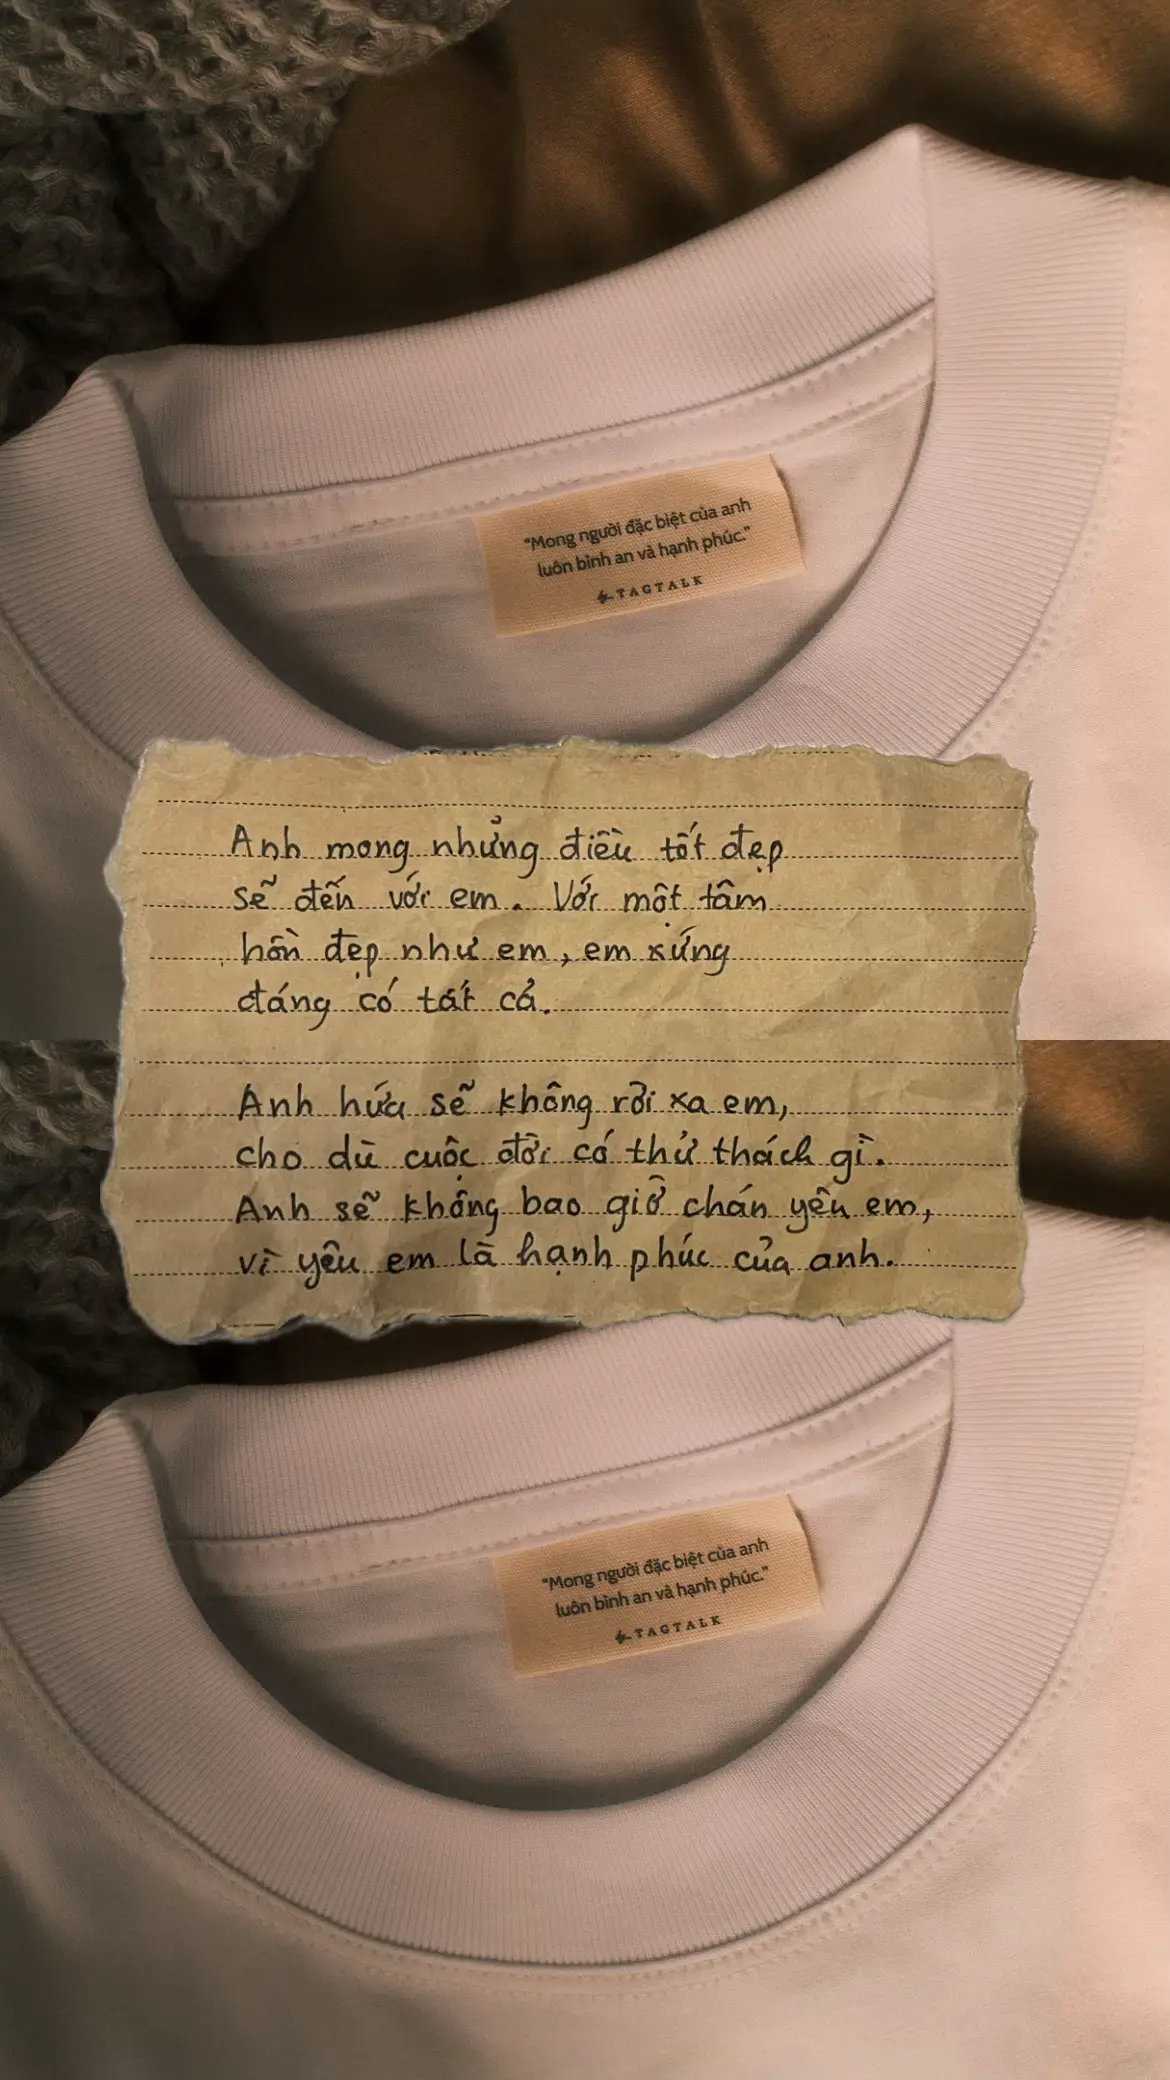 “Mong người đặc biệt của anh
luôn bình an và hạnh phúc.”
TAGTALK
Anh mong những điều tốt đẹp
sẽ đến với em. Với một tâm
hồn đẹp như em, em xứng
đáng có tất cả.
Anh hứa sẽ không rời xa em,
cho dù cuộc đời có thử thách gì.
Anh sẽ không bao giờ chán yêu em,
vì yêu em là hạnh phúc của anh.
“Mong người đặc biệt của anh
luôn bình an và hạnh phúc.”
TAGTALK